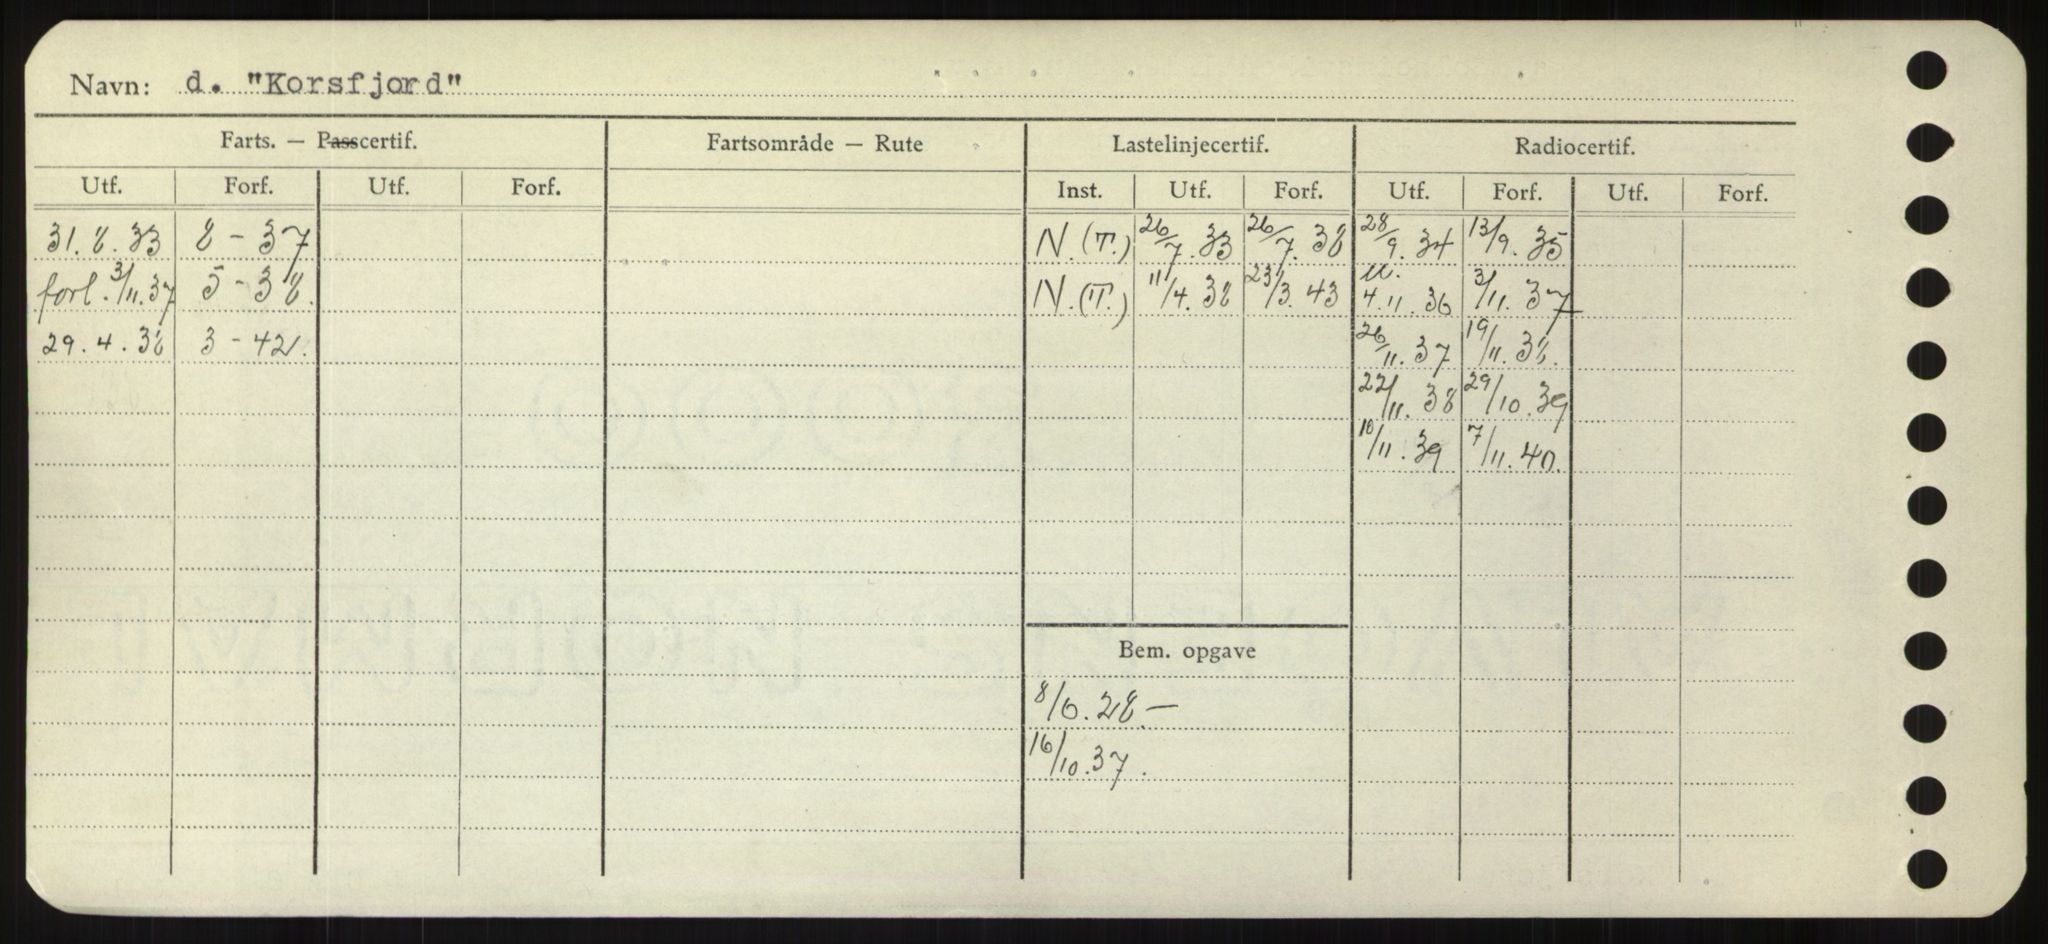 Navn: d. "Korsfjord"
Farts. — Passcertif. Fartsområde — Rute Lastelinjecertif. Radiocertif.
Utf. Forf. Utf. Forf. Inst. Utf. Forf. Utf. Forf. Utf. Forf.
31.8.33 8 - 37 N.(T.) 26/7.33 26/7.38 28/9.34 13/9.35
forl. 3/11.37 5 - 38. N.(T.) 11/4.38 23/3.43 u. 4.11.36 3/11.37
29.4.38 3 - 42. 26/11.37 19/11.38.
22/11.38 29/10.39
10/11.39 7/11.40.
Bem. opgave
8/6.28.—
16/10.37.